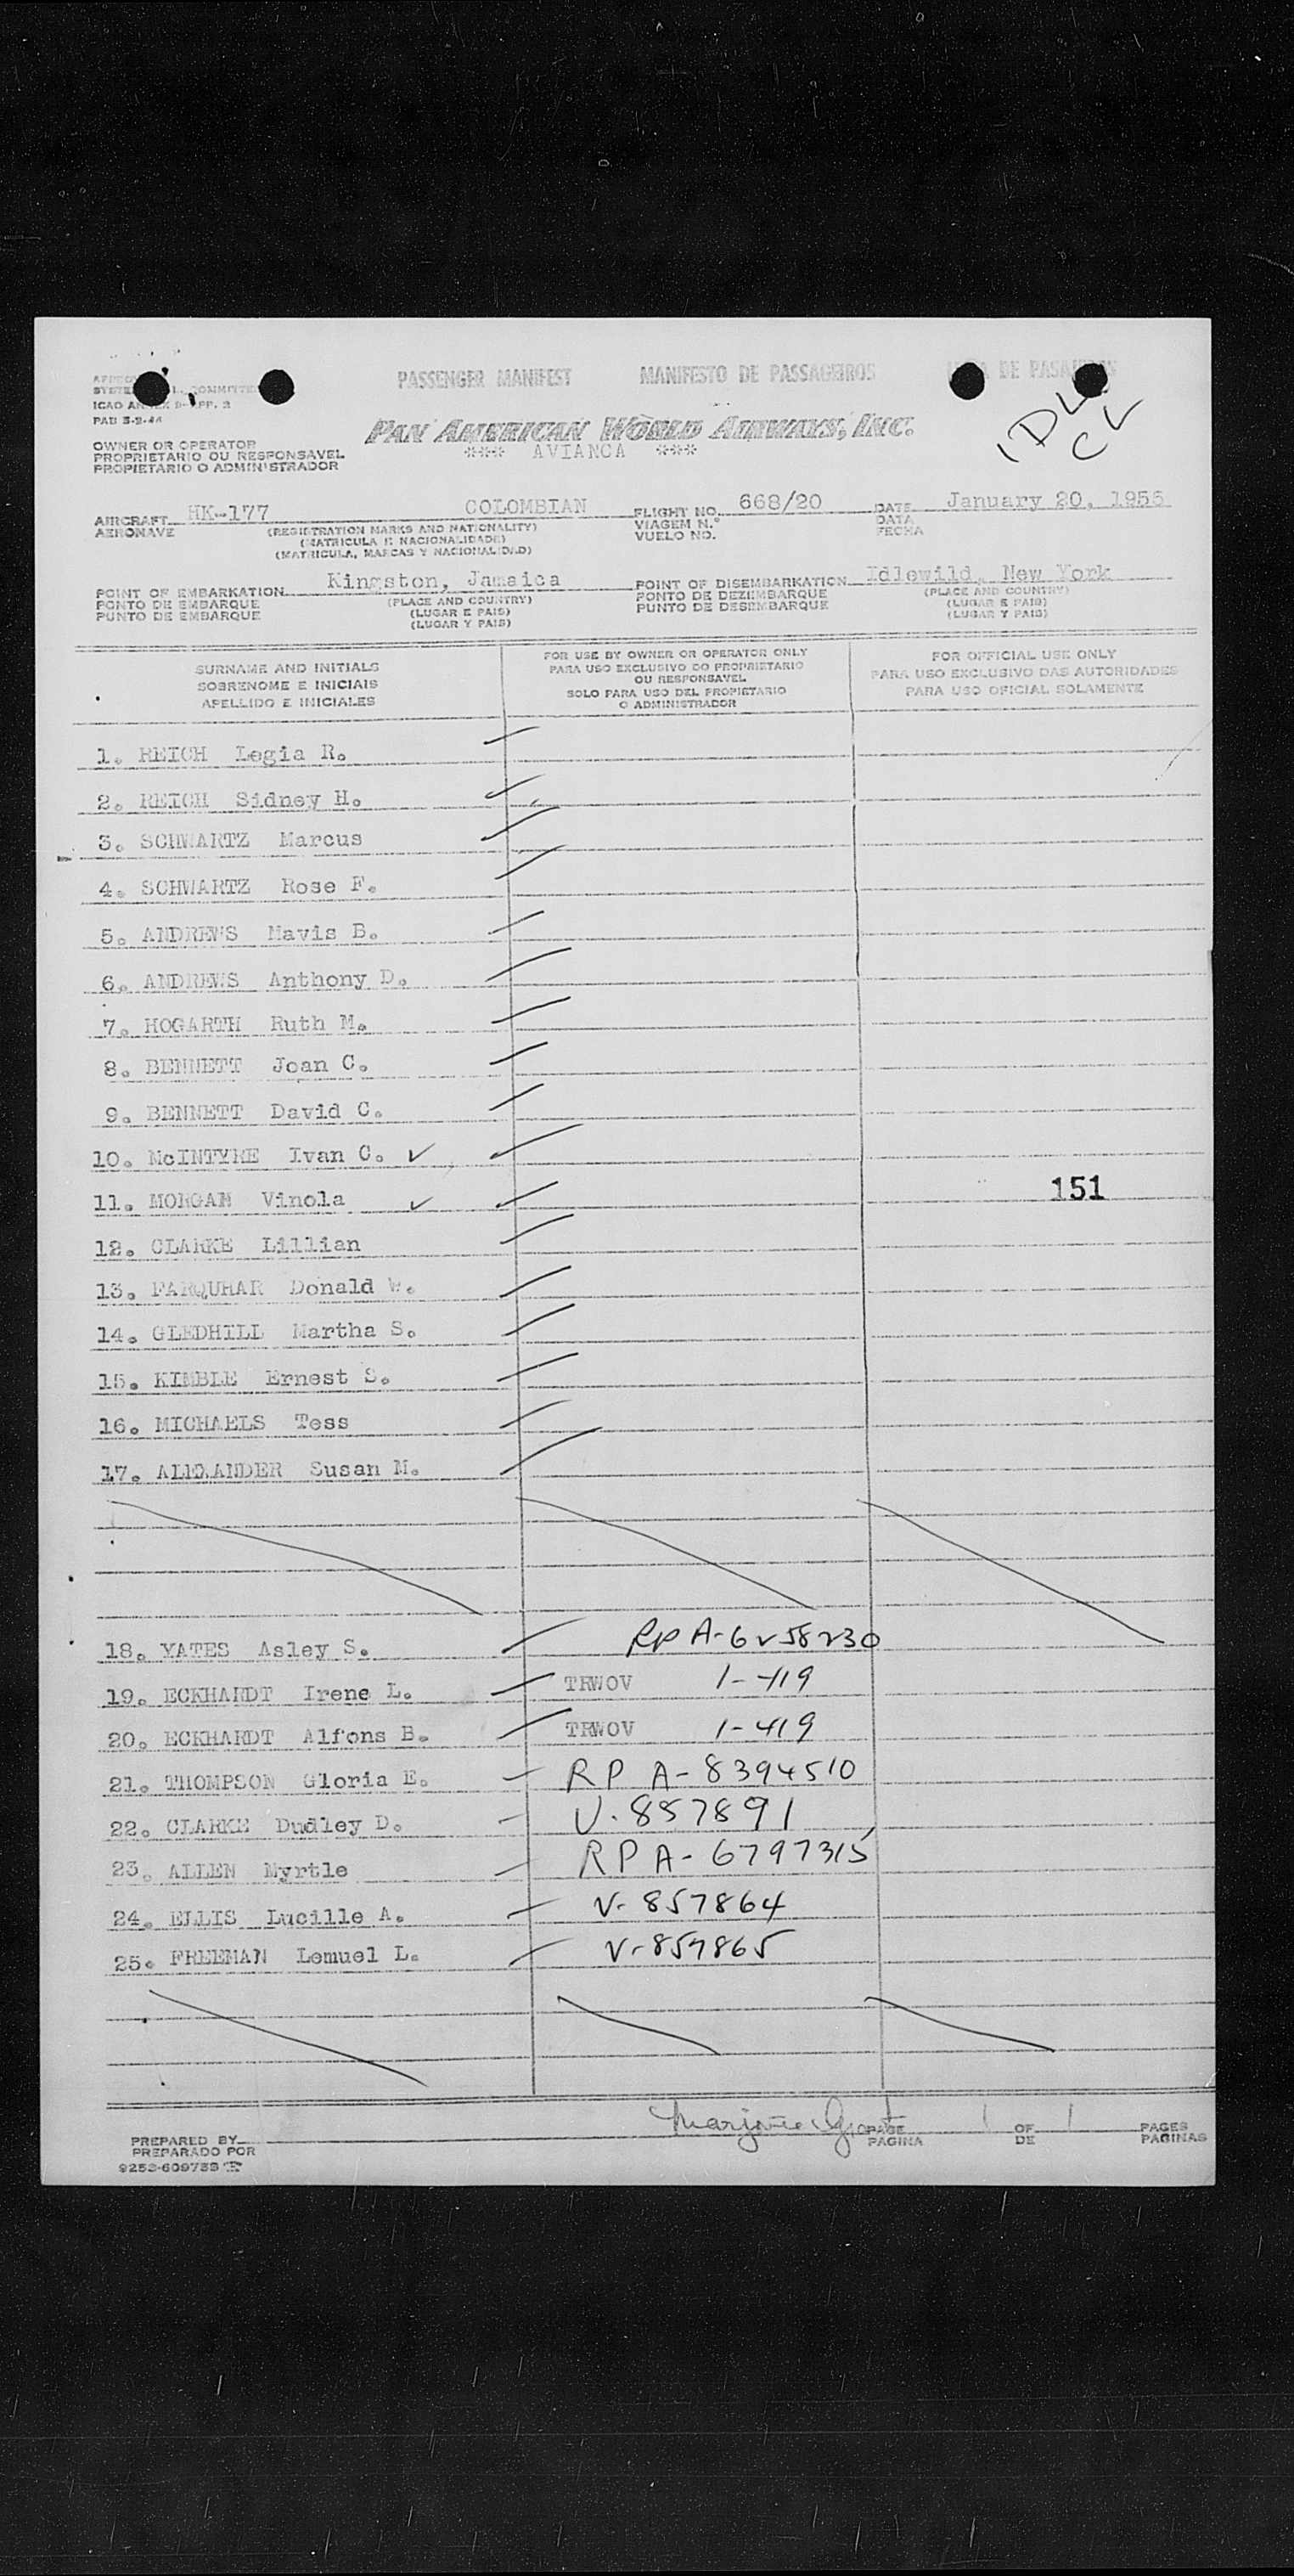 PASSENGER MANIFEST MANIFESTO DE PASSAGEIROS DE PASAJEROS
COMMITTEE
ICAO
PAD 3-2-44
IDL
CL
PAN AMERICAN WORLD AIRWAYS, INC.
*** AVIANCA ***
OWNER OR OPERATOR
PROPRIETARIO OU RESPONSAVEL
PROPIETARIO O ADMINISTRADOR
AIRCRAFT HK-177 COLOMBIAN FLIGHT NO. 668/20 DATE January 20, 1956
AERONAVE (REGISTRATION MARKS AND NATIONALITY) VIAGEM N.° DATA
(MATRICULA E NACIONALIDADE) VUELO NO. FECHA
(MATRICULA, MARCAS Y NACIONALIDAD)
POINT OF EMBARKATION Kingston, Jamaica POINT OF DISEMBARKATION Idlewild, New York
PONTO DE EMBARQUE (PLACE AND COUNTRY) PONTO DE DEZEMBARQUE (PLACE AND COUNTRY)
PUNTO DE EMBARQUE (LUGAR E PAIS) PUNTO DE DESEMBARQUE (LUGAR E PAIS)
(LUGAR Y PAIS) (LUGAR Y PAIS)
SURNAME AND INITIALS
SOBRENOME E INICIAIS
APELLIDO E INICIALES
FOR USE BY OWNER OR OPERATOR ONLY
PARA USO EXCLUSIVO DO PROPRIETARIO
OU RESPONSAVEL
SOLO PARA USO DEL PROPIETARIO
O ADMINISTRADOR
FOR OFFICIAL USE ONLY
PARA USO EXCLUSIVO DAS AUTORIDADES
PARA USO OFICIAL SOLAMENTE
1. REICH Legia R.
2. REICH Sidney H.
3. SCHWARTZ Marcus
4. SCHWARTZ Rose F.
5. ANDREWS Mavis B.
6. ANDREWS Anthony D.
7. HOGARTH Ruth M.
8. BENNETT Joan C.
9. BENNETT David C.
10. McINTYRE Ivan C. ✓
11. MORGAN Vinola ✓ 151
12. CLARKE Lillian
13. FARQUHAR Donald W.
14. GLEDHILL Martha S.
15. KIMBLE Ernest S.
16. MICHAELS Tess
17. ALEXANDER Susan M.
18. YATES Asley S. RP A-6258230
19. ECKHARDT Irene L. TRWOV 1-419
20. ECKHARDT Alfons B. TRWOV 1-419
21. THOMPSON Gloria E. RP A-8394510
22. CLARKE Dudley D. V-857891
23. ALLEN Myrtle RP A-6797315
24. ELLIS Lucille A. V-857864
25. FREEMAN Lemuel L. V-857865
PREPARED BY Marjorie PAGE 1 OF 1 PAGES
PREPARADO POR PAGINA DE PAGINAS